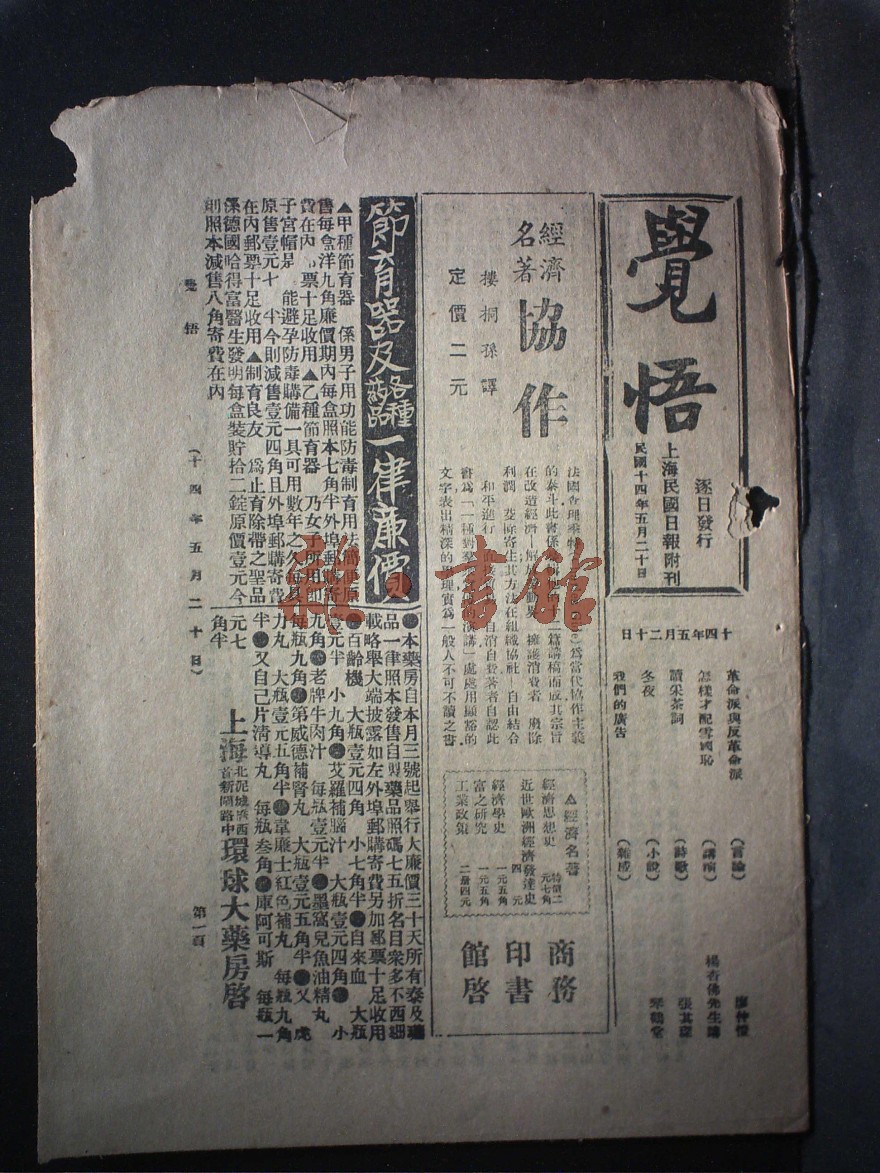 覺悟
逐日發行
上海民國日報附刊
民國十四年五月二十日
十四年五月二十日
革命派與反革命派（言論）廖仲愷
怎樣才配雪國恥（講演）楊杏佛先生講
讀采茶詞（詩歌）張其
冬夜（小說）
我們的廣告（雜感）
經濟名著
協作
樓桐孫譯
定價二元
為當代協作主義
的泰斗此書係
在改造經濟 解放 擁護消費者 廢除
利潤 其方法在組織協社 自由結合
和平進行 自消自 著者自認此
書為「一種對 演講」處處用顯豁的
文字表出精深的 理實為一般人不可不讀之書
△經濟名著
經濟思想史 特價二元七角
近世歐洲經濟發達史 四元
經濟學史 一元五角
富之研究 一元五角
工業政策 二冊四元
商務印書館啓
節育器及各種藥品一律廉價
▲甲種節育器 係男子用功能防毒制育用法簡便原
售每盒洋九角廉價期內每盒照本七角半外埠郵購寄
費在內 票十足收用▲乙種節育器 乃女子所用即
子宮帽是 能避孕防毒購備一具可用數年之久每具
原售壹元七 半今則減售壹元四角且外埠郵購寄費
在內郵票十足收用▲制育良友 為止育除帶之聖品
係德國哈得富醫生發明每盒裝貯拾二錠原價壹元今
則照本減售八角寄費在內
●本藥房自本月三號起舉行大廉價三十天所有
品一律照本發售自製藥品照碼七五折名目衆多不
載略舉大端披露如左外埠郵購寄費另加郵票十足收用
●百齡機 大瓶壹元四角 小七角半●自來血 大瓶
壹元半 小九角●艾羅補腦汁 大瓶壹元四角● 小
九角●老牌牛肉汁 每瓶壹元半●墨窩兒魚油精丸
每瓶九角●第威德補腎丸 大瓶壹元五角半●又
力丸 大瓶壹元五角半●韋廉士紅色補丸 每瓶九角
半●又自己片清導丸 每瓶叁角●庫阿可斯 每瓶一
元七角半
上海北泥城橋西首新閘路中環球大藥房啓
覺悟
（十四年五月二十日）
第一頁
雜·書館